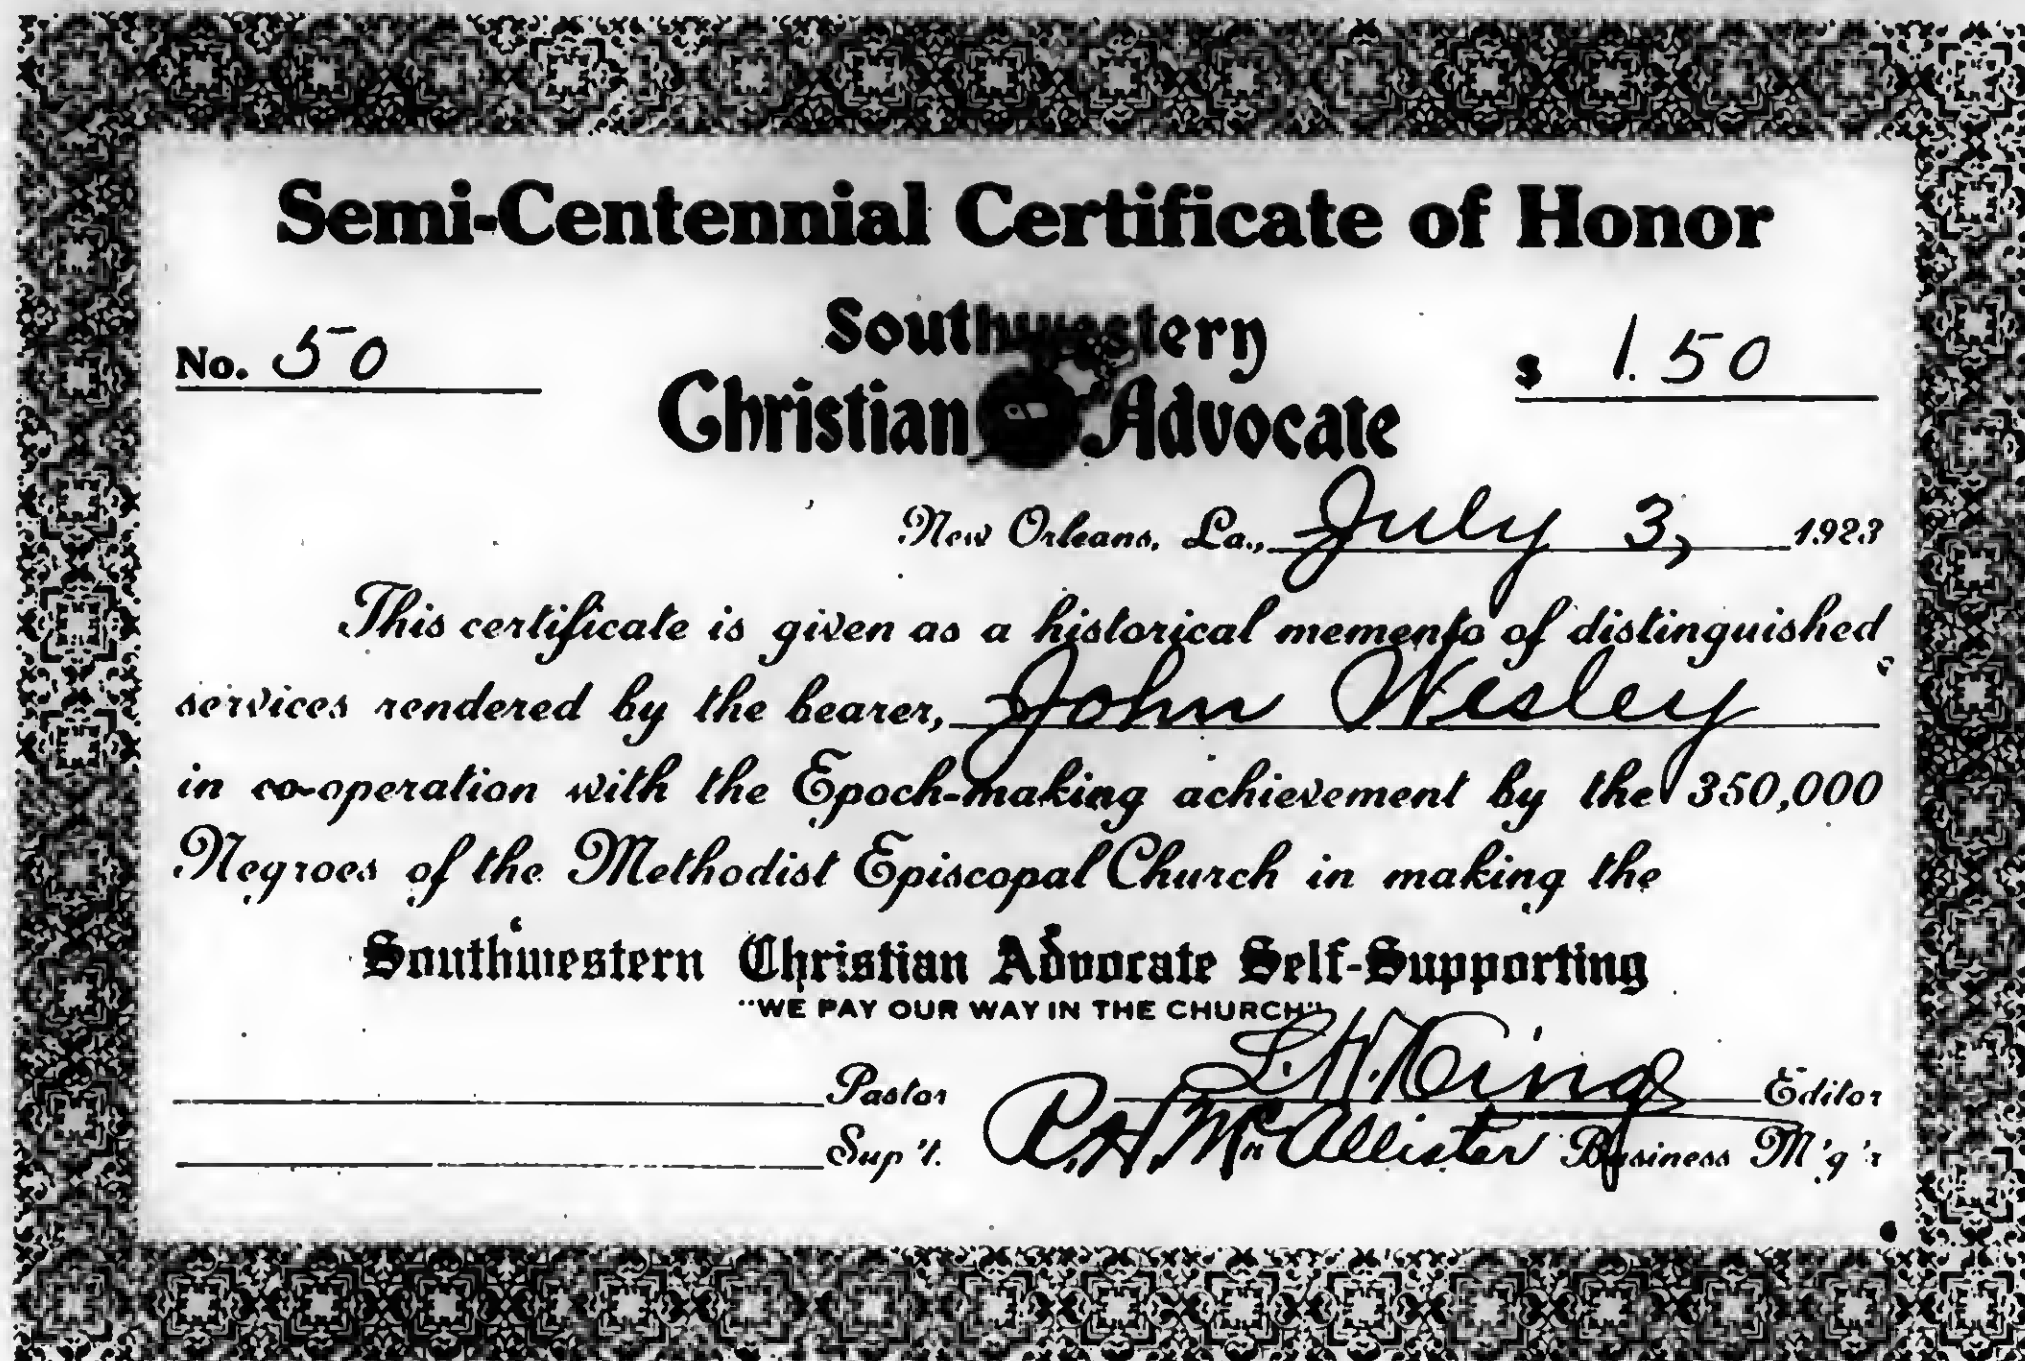 Semi-Centennial Certificate of Honor
No. 50
Southwestern
Christian Advocate
$ 1.50
New Orleans, La., July 3, 1923
This certificate is given as a historical memento of distinguished
services rendered by the bearer, John Wesley
in co-operation with the Epoch-making achievement by the 350,000
Negroes of the Methodist Episcopal Church in making the
Southwestern Christian Advocate Self-Supporting
"WE PAY OUR WAY IN THE CHURCH"
Pastor L. H. King Editor
Sup't. R. H. McAllister Business M'g'r